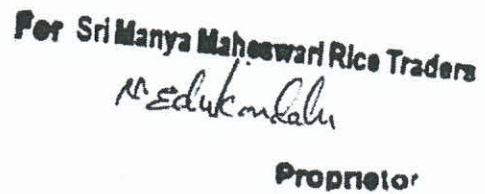 For Sri Manya Maheswari Rice Traders
N Edukondalu
Proprietor